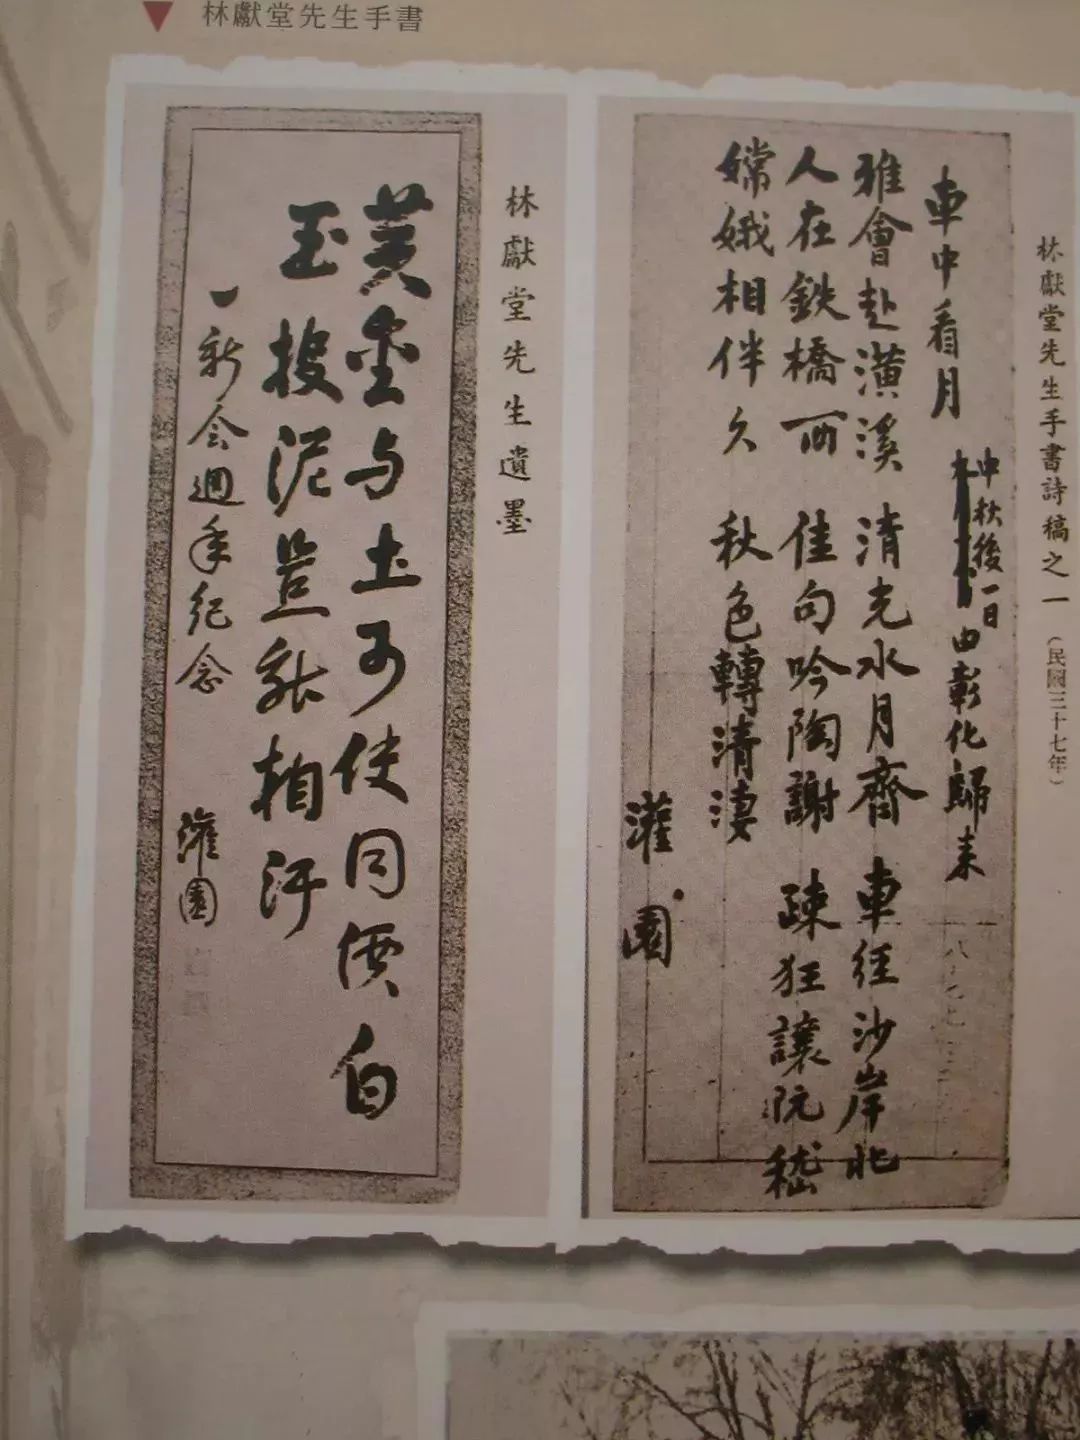 林獻堂先生手書
林獻堂先生手書詩稿之一(民國三十七年)
車中看月
中秋後一日
由彰化歸來
雅會赴潢溪 清光水月齊 車徑沙岸北
人在鉄橋西 佳句吟陶謝 疎狂讓阮嵇
嫦娥相伴久 秋色轉清淒
灌園
林獻堂先生遺墨
黄金与土可使同價白
玉投泥豈能相汙
一新会週年纪念
灌園